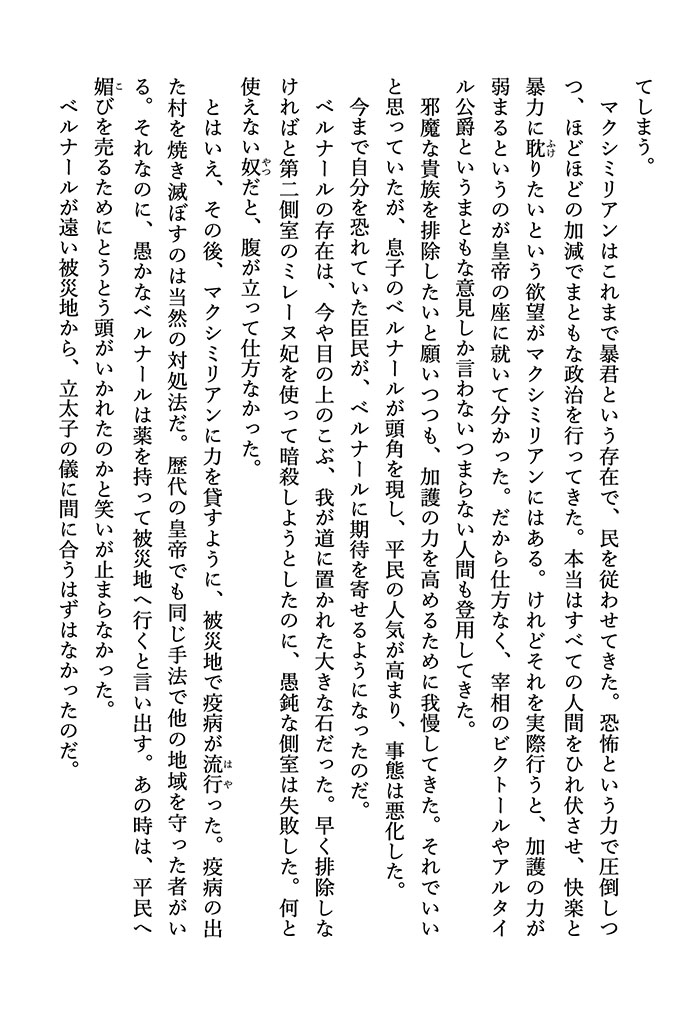 てしまう。
　マクシミリアンはこれまで暴君という存在で、民を従わせてきた。恐怖という力で圧倒しつ
つ、ほどほどの加減でまともな政治を行ってきた。本当はすべての人間をひれ伏させ、快楽と
暴力に耽りたいという欲望がマクシミリアンにはある。けれどそれを実際行うと、加護の力が
弱まるというのが皇帝の座に就いて分かった。だから仕方なく、宰相のビクトールやアルタイ
ル公爵というまともな意見しか言わないつまらない人間も登用してきた。
　邪魔な貴族を排除したいと願いつつも、加護の力を高めるために我慢してきた。それでいい
と思っていたが、息子のベルナールが頭角を現し、平民の人気が高まり、事態は悪化した。
　今まで自分を恐れていた臣民が、ベルナールに期待を寄せるようになったのだ。
　ベルナールの存在は、今や目の上のこぶ、我が道に置かれた大きな石だった。早く排除しな
ければと第二側室のミレーヌ妃を使って暗殺しようとしたのに、愚鈍な側室は失敗した。何と
使えない奴だと、腹が立って仕方なかった。
　とはいえ、その後、マクシミリアンに力を貸すように、被災地で疫病が流行った。疫病の出
た村を焼き滅ぼすのは当然の対処法だ。歴代の皇帝でも同じ手法で他の地域を守った者がい
る。それなのに、愚かなベルナールは薬を持って被災地へ行くと言い出す。あの時は、平民へ
媚びを売るためにとうとう頭がいかれたのかと笑いが止まらなかった。
　ベルナールが遠い被災地から、立太子の儀に間に合うはずはなかったのだ。